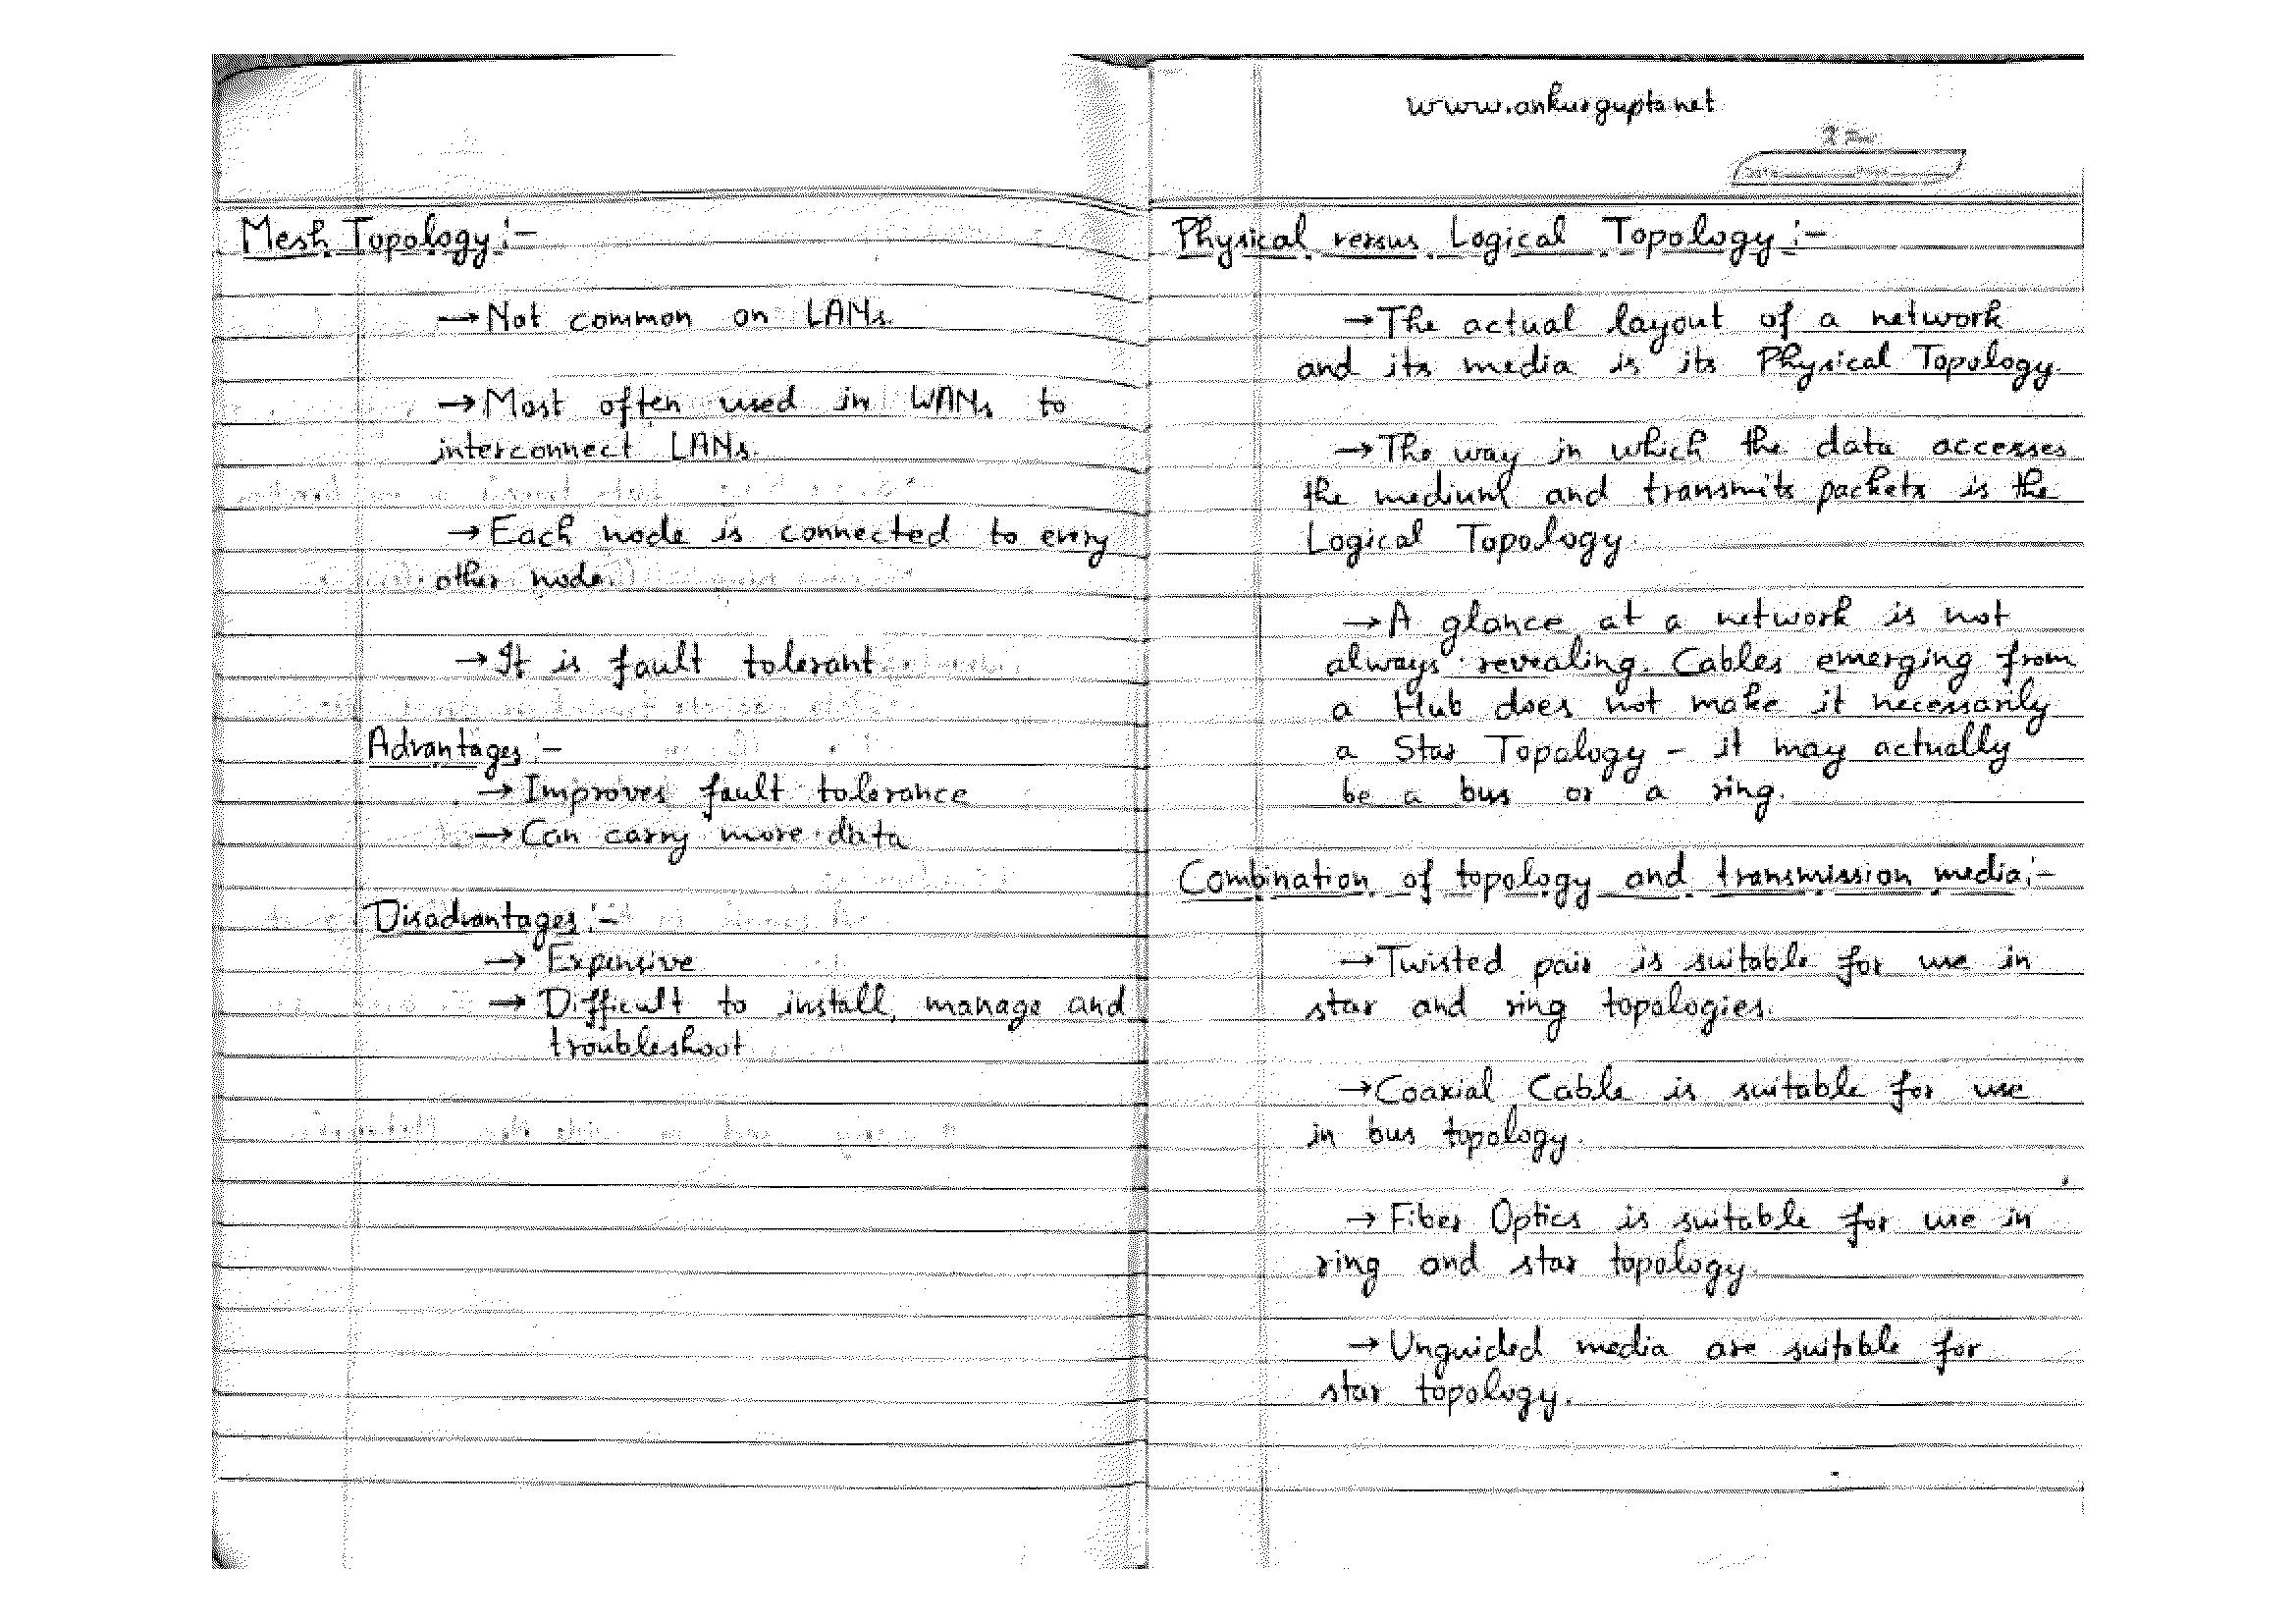 Mesh Topology :-
→ Not common on LANs.
→ Most often used in WANs to
interconnect LANs.
→ Each node is connected to every
other node.
→ It is fault tolerant
Advantages :-
→ Improves fault tolerance
→ Can carry more data
Disadvantages :-
→ Expensive
→ Difficult to install, manage and
troubleshoot
www.ankurgupta.net
Physical versus Logical Topology :-
→ The actual layout of a network
and its media is its Physical Topology.
→ The way in which the data accesses
the medium and transmits packets is the
Logical Topology.
→ A glance at a network is not
always revealing. Cables emerging from
a Hub does not make it necessarily
a Star Topology - it may actually
be a bus or a ring.
Combination of topology and transmission media :-
→ Twisted pair is suitable for use in
star and ring topologies.
→ Coaxial Cable is suitable for use
in bus topology.
→ Fiber Optics is suitable for use in
ring and star topology.
→ Unguided media are suitable for
star topology.